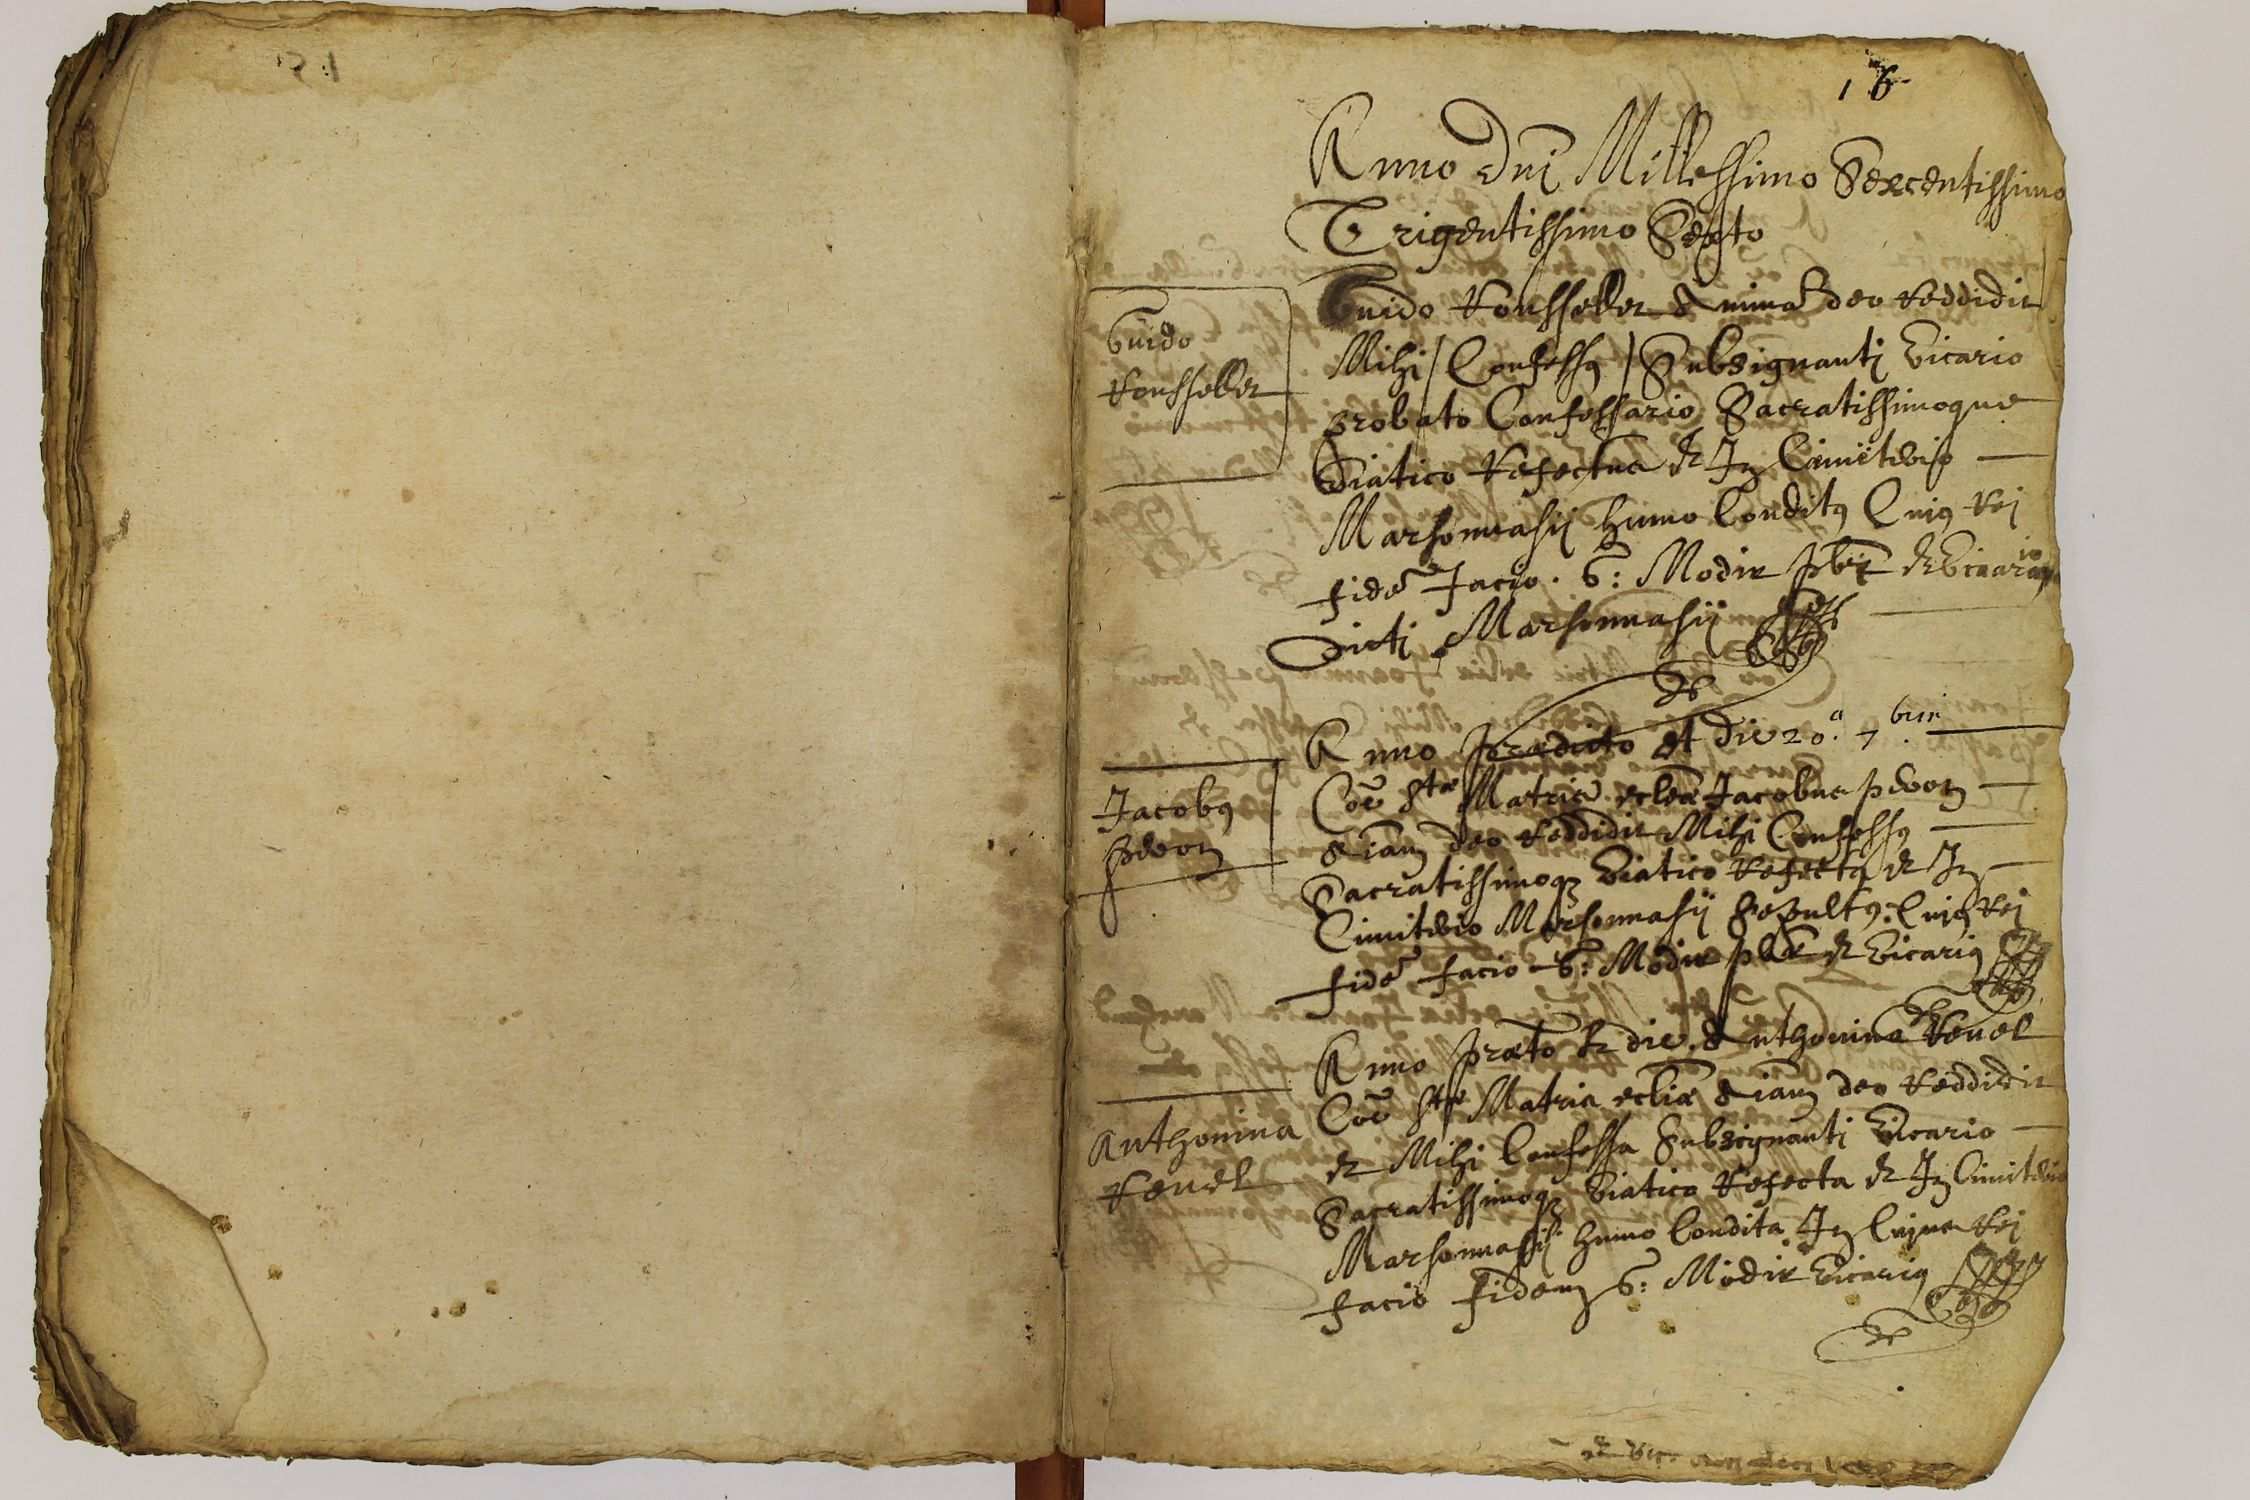 16
Anno Dnī Millessimo Sexcentissimo
Trigentissimo Sexto
Guido
Rousselet
Guido Rousselet Animā deo reddidit
Mihi / Confessꝰ / Subsignanti Vicario
probato Confessario Sacratissimoque
Viatico Refectus et In Cimiterio
Marsonnasii humo Conditꝰ Cujꝰ Rei
fidē facio. G: Modix pbr et Vicario
Dicti Marsonnasii
Jacobꝰ
Anno prædicto et die 20.a 7.bris
Coē Stæ Matris eclēæ Jacobus
Etiam deo reddidit Mihi Confessꝰ
Sacratissimoqꝫ Viatico Refectꝰ et In
Cimiterio Marsonnasii Sepultꝰ. Cujꝰ Rei
fidē facio G: Modix pbr et Vicariꝰ
Anthonina
Revel
Anno præto et die. Anthonina Revel
Coē Stæ Matris ecliæ Etiam deo Reddidit
et Mihi Confessa Subsignanti Vicario
Sacratissimoqꝫ Viatico Refecta et In Cimiterio
Marsonnasii humo Condita In Cujus Rei
facio fidem G: Modix Vicariꝰ